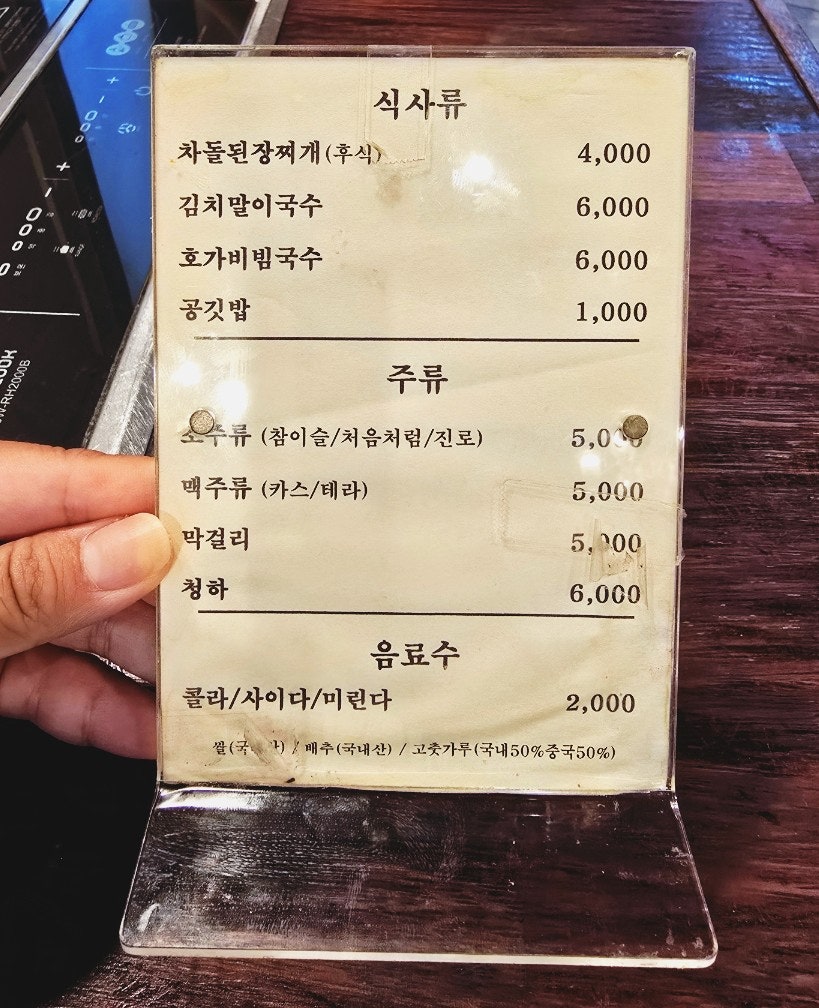 식사류
차돌된장찌개(후식) 4,000
김치말이국수 6,000
호가비빔국수 6,000
공깃밥 1,000
주류
소주류 (참이슬/처음처럼/진로) 5,000
맥주류 (카스/테라) 5,000
막걸리 5,000
청하 6,000
음료수
콜라/사이다/미린다 2,000
/ 배추(국내산) / 고춧가루(국내50%중국50%)
W-RH2000B